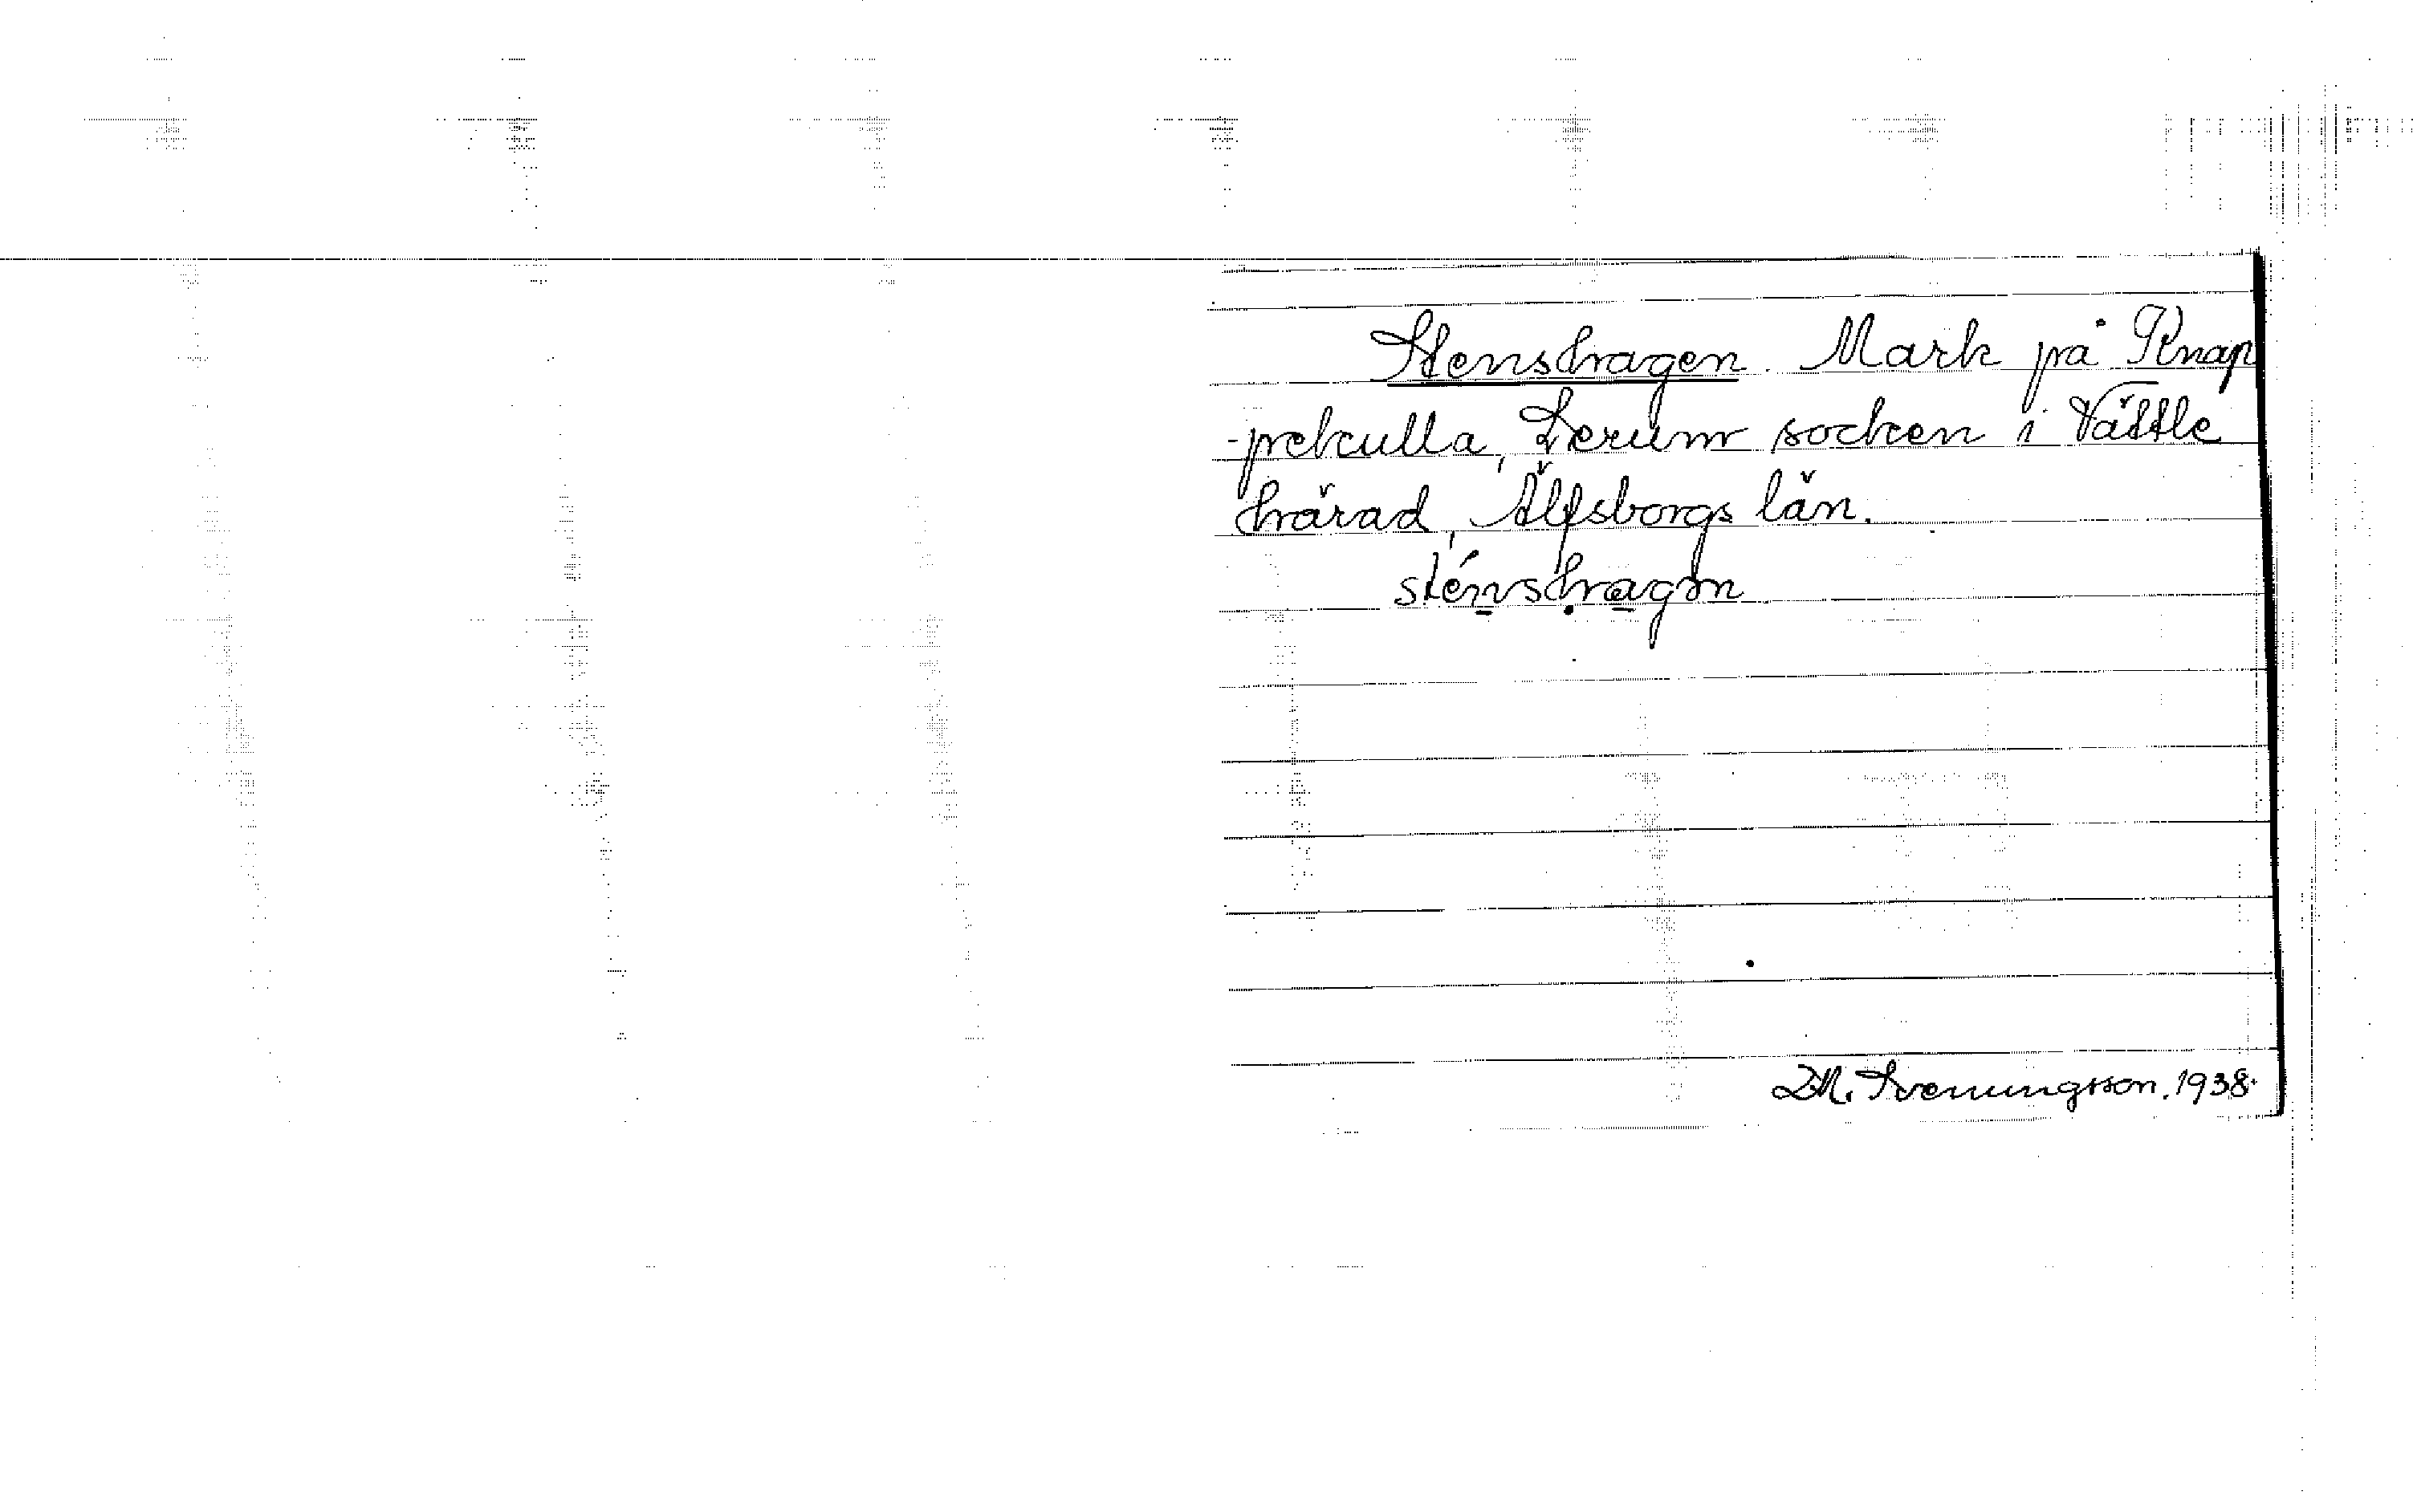 Stenshagen. Mark på Knap
-pekulla, Lerum socken i Vättle
härad, Älfsborgs län.
sténshagən
D.N. Svenungsson. 1938.